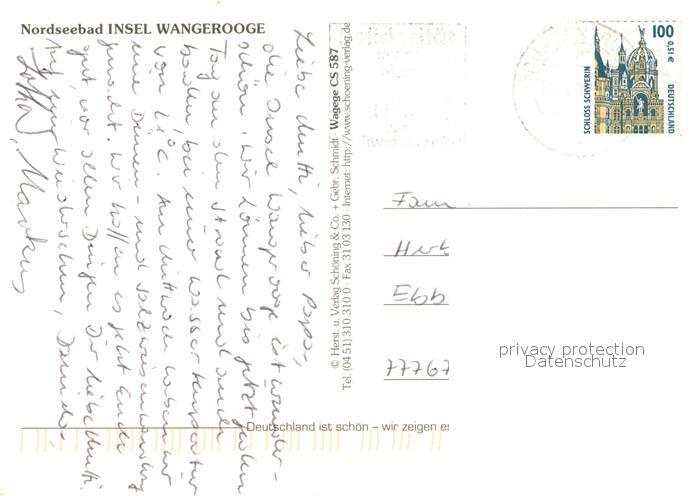 Nordseebad INSEL WANGEROOGE
Liebe Mutti, lieber Papa,
die Insel Wangerooge ist wunder-
schön. Wir können bis jetzt jeden
Tag an den Strand und auch
baden, bei einer Wassertemperatur
von 21°C. Am Mittwoch haben wir
eine Dünen- und Salzwiesenwanderung
gemacht. Wir hoffen es geht Euch
gut, vor allen Dingen Dir liebe Mutti.
Auf Wiedersehen,
Markus
© Herst. u. Verlag Schöning & Co. + Gebr. Schmidt · Wagege CS 587
Tel. (04 51) 310 310 0 · Fax 31 03 130 · Internet: http://www.schoening-verlag.de
Deutschland ist schön – wir zeigen es
SCHLOSS SCHWERIN
100
0,51 €
DEUTSCHLAND
Fam.
Herb
Ebb
77767
privacy protection
Datenschutz